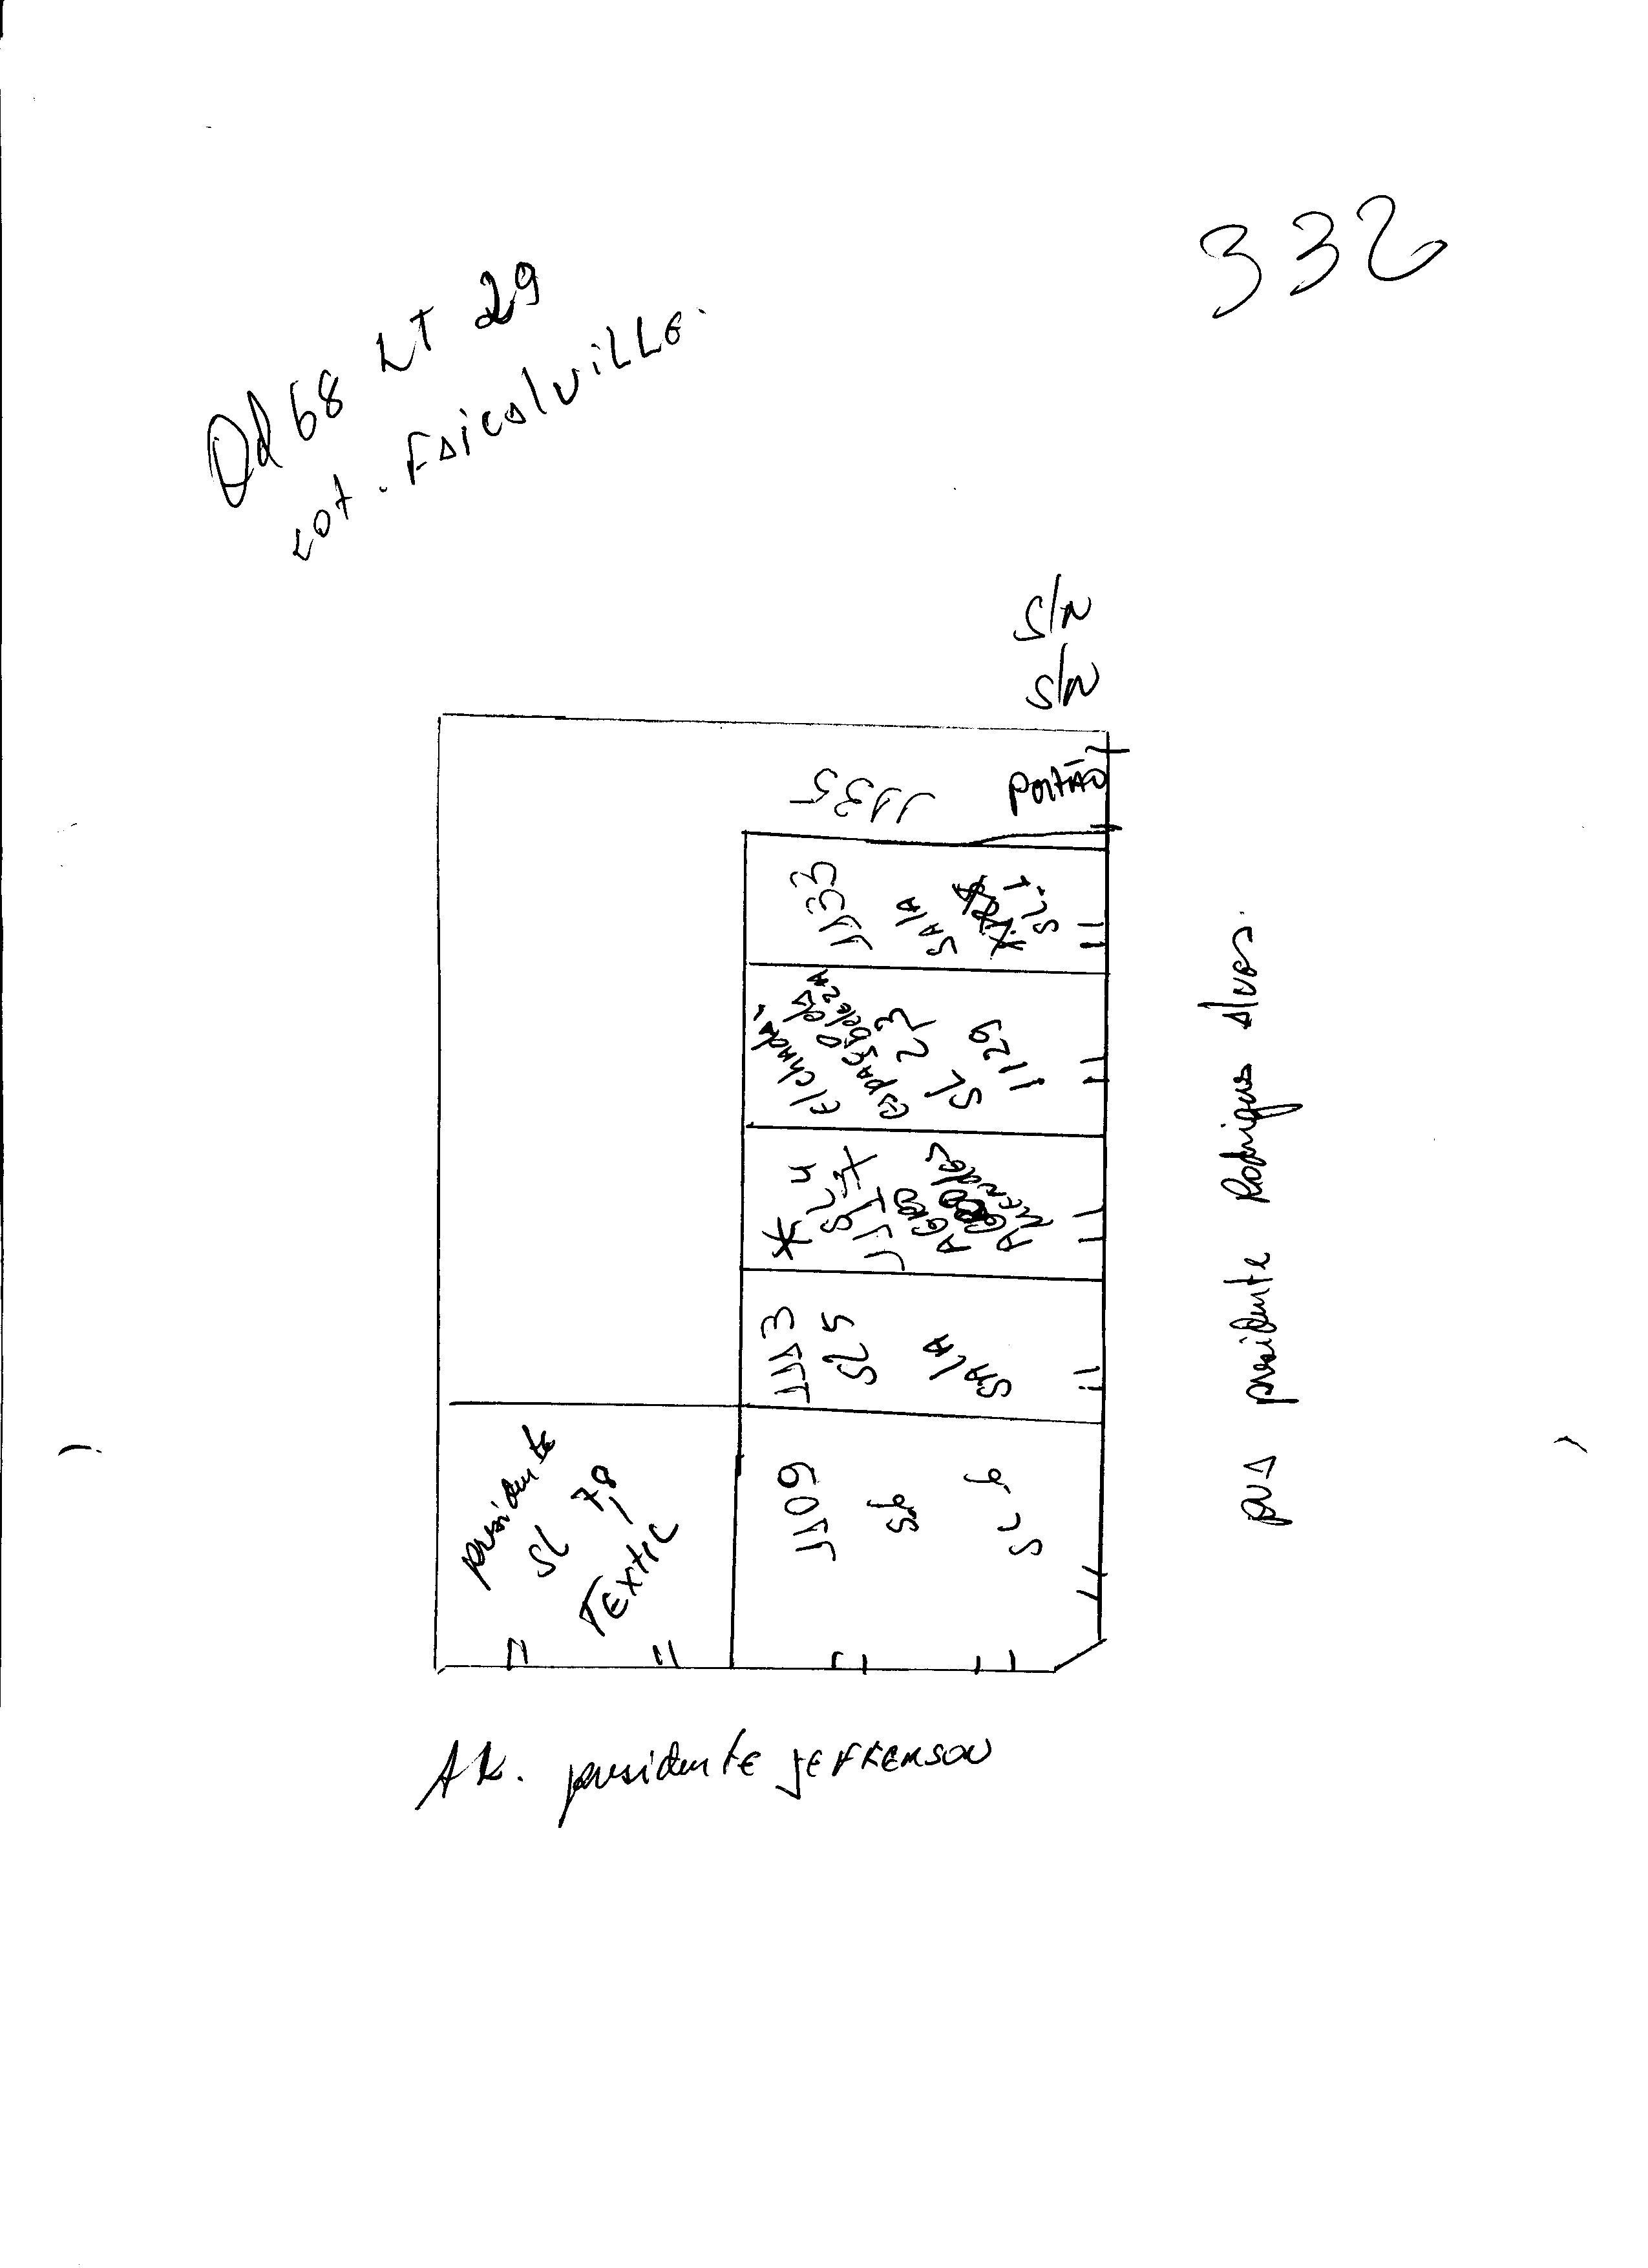 332
Qd 68 LT 29
Lot. Faicalville.
S/N
S/N
Portão
1135
1133
SALA
SL.1
espaço da
beleza
SL 2,3
1129
*
SL 4
111
AGRO
Mendes
1113
SL 5
SALA
1109
SL 6
presidente
SL 7,8
TEXTIL
rua presidente Rodrigues Alves.
presidente JEFFERSON